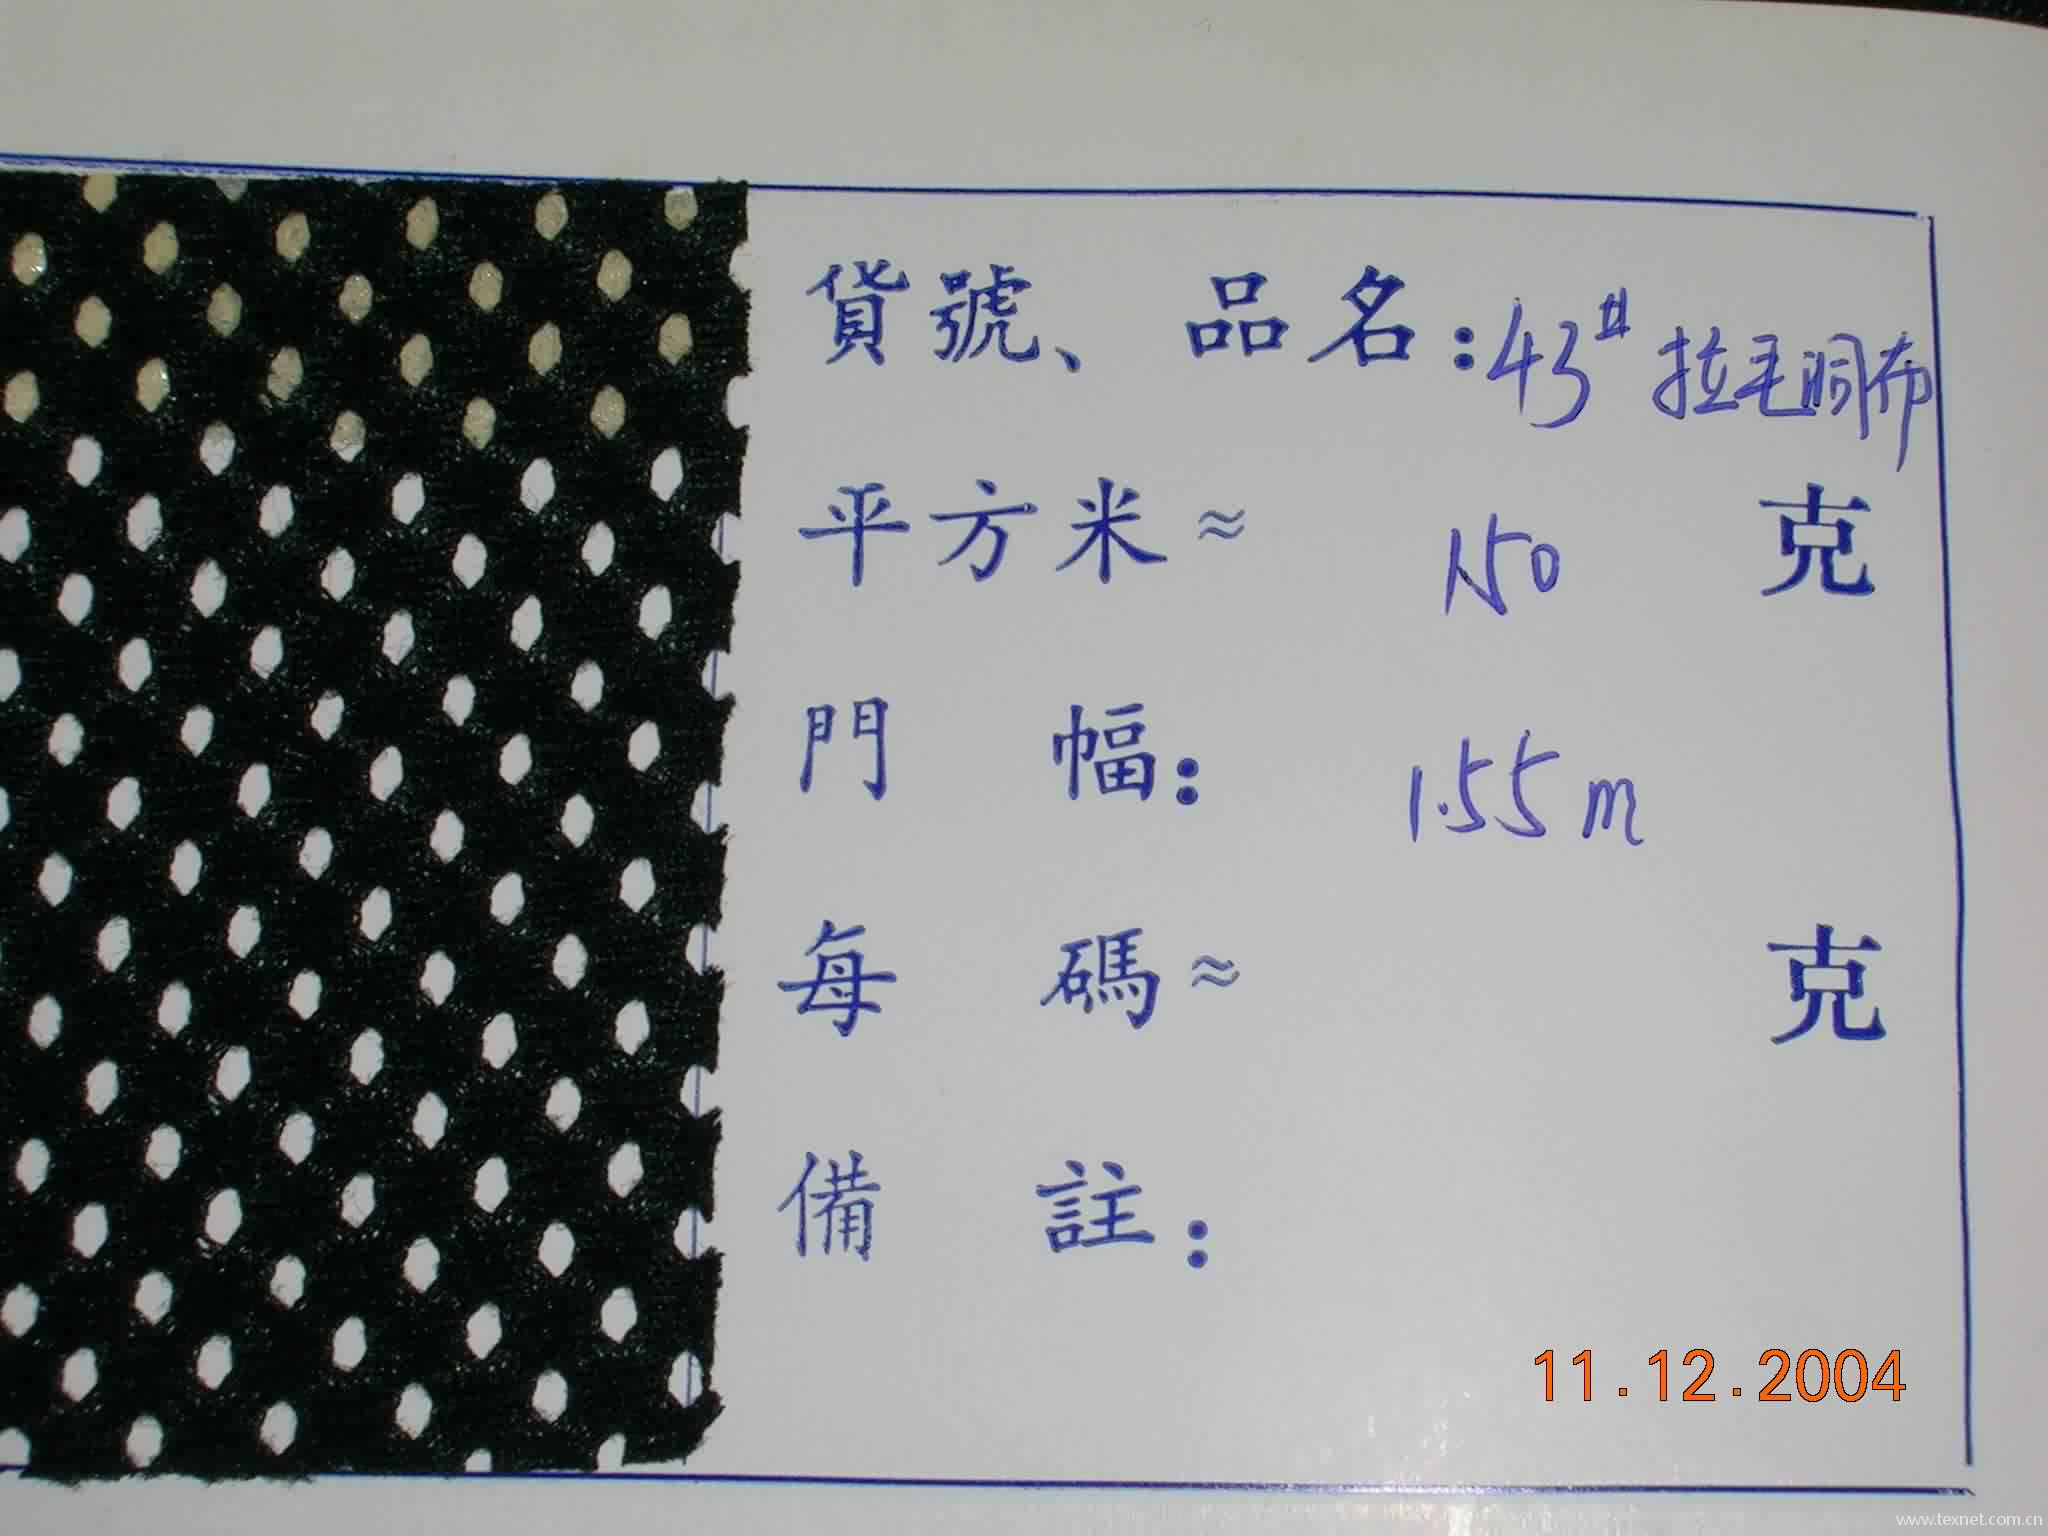 貨號、品名:43# 拉毛洞布
平方米≈ 150 克
門幅: 1.55m
每碼≈ 克
備註:
11.12.2004
www.texnet.com.cn